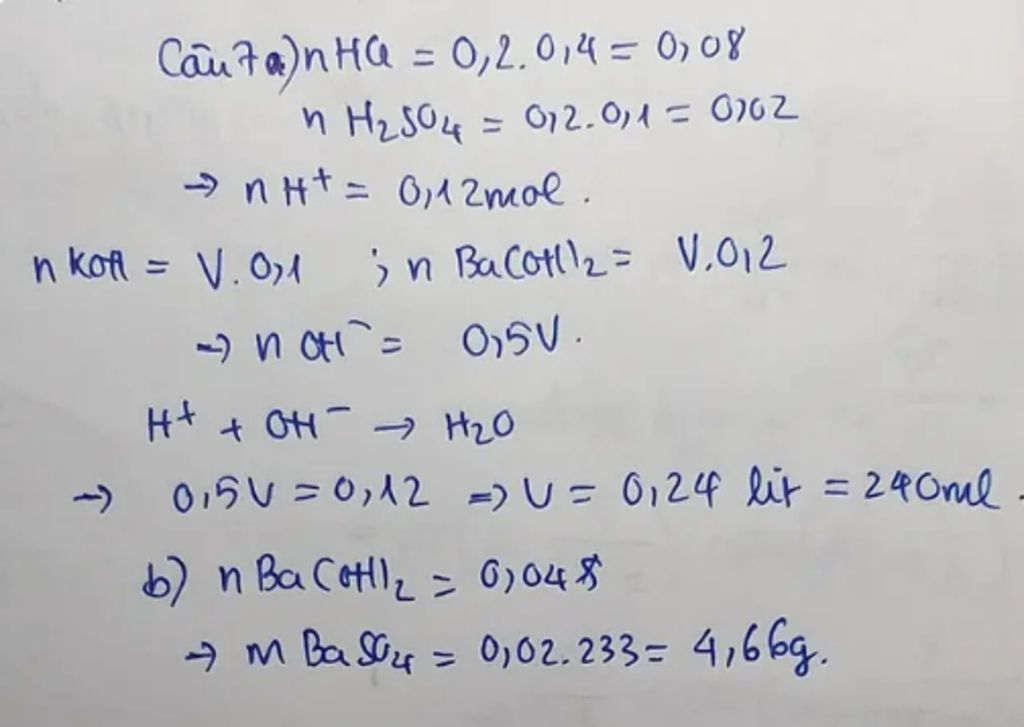 Câu 7 a) nHCl = 0,2.0,4 = 0,08
n H2SO4 = 0,2.0,1 = 0,02
→ nH+ = 0,12mol.
n KOH = V.0,1 ; n Ba(OH)2 = V.0,2
→ n OH- = 0,5V.
H+ + OH- → H2O
→ 0,5V = 0,12 => V = 0,24 lít = 240ml.
b) n Ba(OH)2 = 0,048
→ m BaSO4 = 0,02.233 = 4,66g.